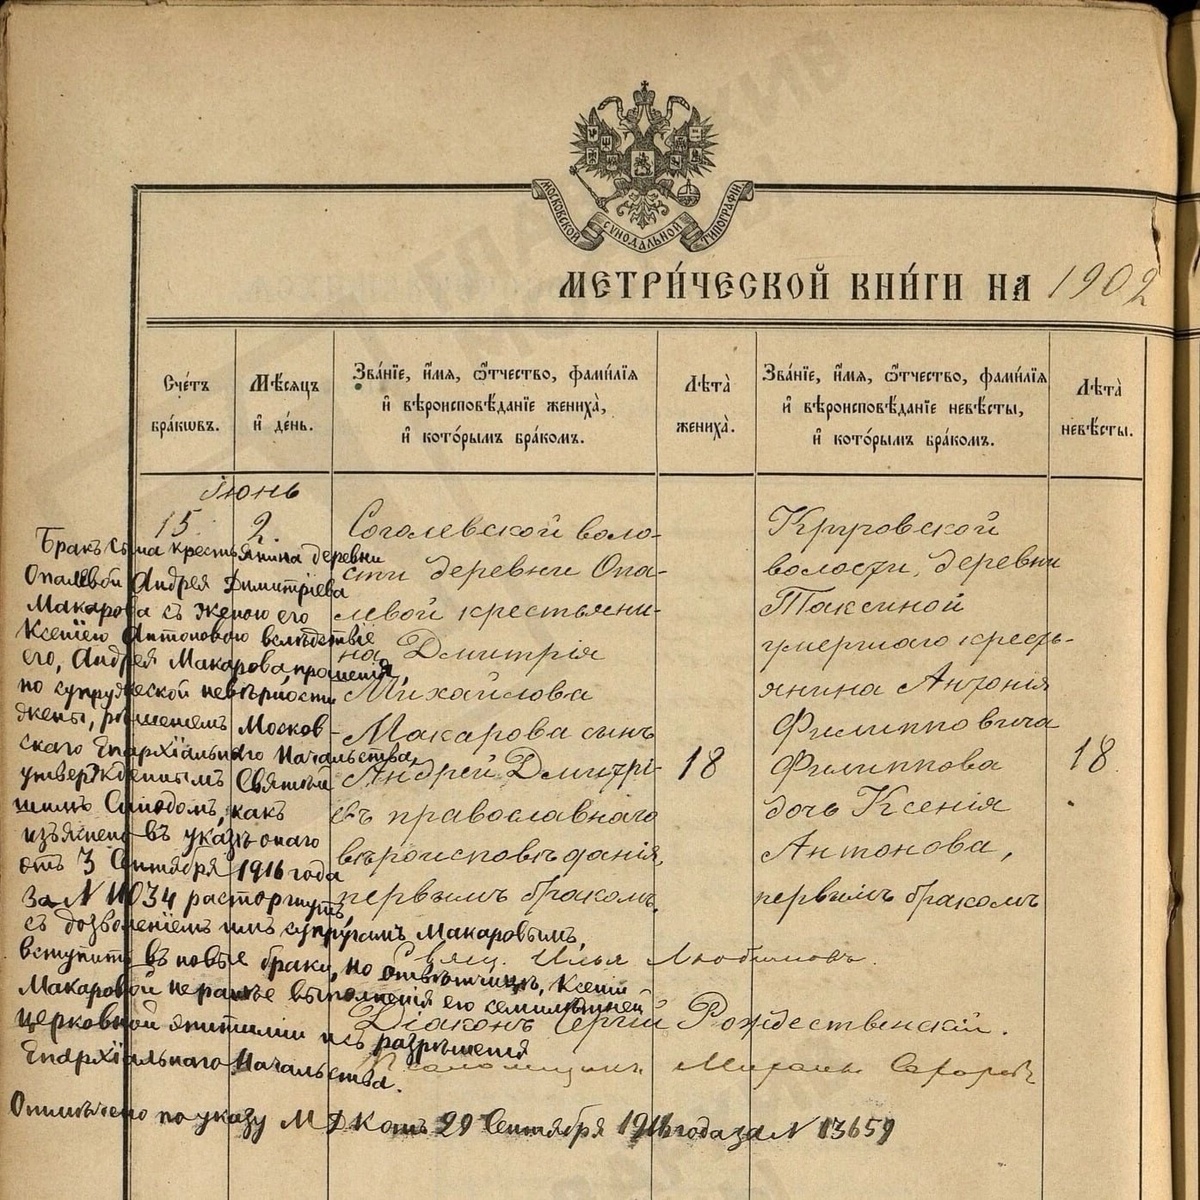 МОСКОВСКОЙ СѴНОДАЛЬНОЙ ТИПОГРАФІИ
МЕТРИ́ЧЕСКОЙ КНИ́ГИ НА 1902
Сче́тъ
бра́кѡвъ.
Мѣ́сяцъ
и҆ де́нь.
Зва́нїе, и҆́мѧ, ѻ҆́тчество, фами́лїѧ
и҆ вѣроисповѣ́данїе жениха̀,
и҆ кото́рымъ бра́комъ.
Лѣ́та̀
жениха̀.
Зва́нїе, и҆́мѧ, ѻ҆́тчество, фами́лїѧ
и҆ вѣроисповѣ́данїе невѣ́сты,
и҆ кото́рымъ бра́комъ.
Лѣ́та̀
невѣ́сты.
Іюнь
15.
2.
Соголевской воло-
сти деревни Опа-
левой крестьяни-
на Дмитрія
Михайлова
Макарова сынъ
Андрей Дмитрі-
евъ православнаго
вѣроисповѣданія,
первымъ бракомъ.
18
Круговской
волости, деревни
Таксиной
умершаго кресть-
янина Антонія
Филипповича
Филиппова
дочь Ксенія
Антонова,
первымъ бракомъ
18.
Свящ. Илья Любимовъ.
Діаконъ Сергій Рождественскій.
Псаломщикъ
Бракъ сына крестьянина деревни
Опалевой Андрея Димитріева
Макарова съ женою его
Ксеніею Антоновою вслѣдствіе
его, Андрея Макарова, прошенія,
по супружеской невѣрности
жены, рѣшеніемъ Москов-
скаго Епархіальнаго Начальства,
утвержденнымъ Святѣй-
шимъ Синодомъ, какъ
изъяснено въ указѣ онаго
отъ 3 Сентября 1916 года
за N 11034 расторгнутъ,
съ дозволеніемъ имъ супругамъ Макаровымъ,
вступить въ новые браки, но отвѣтчицѣ, Ксеніи
Макаровой не ранѣе выполненія ею семилѣтней
церковной эпитиміи и съ разрѣшенія
Епархіальнаго Начальства.
Отмѣчено по указу МДК отъ 29 Сентября 1916 года за N 13659